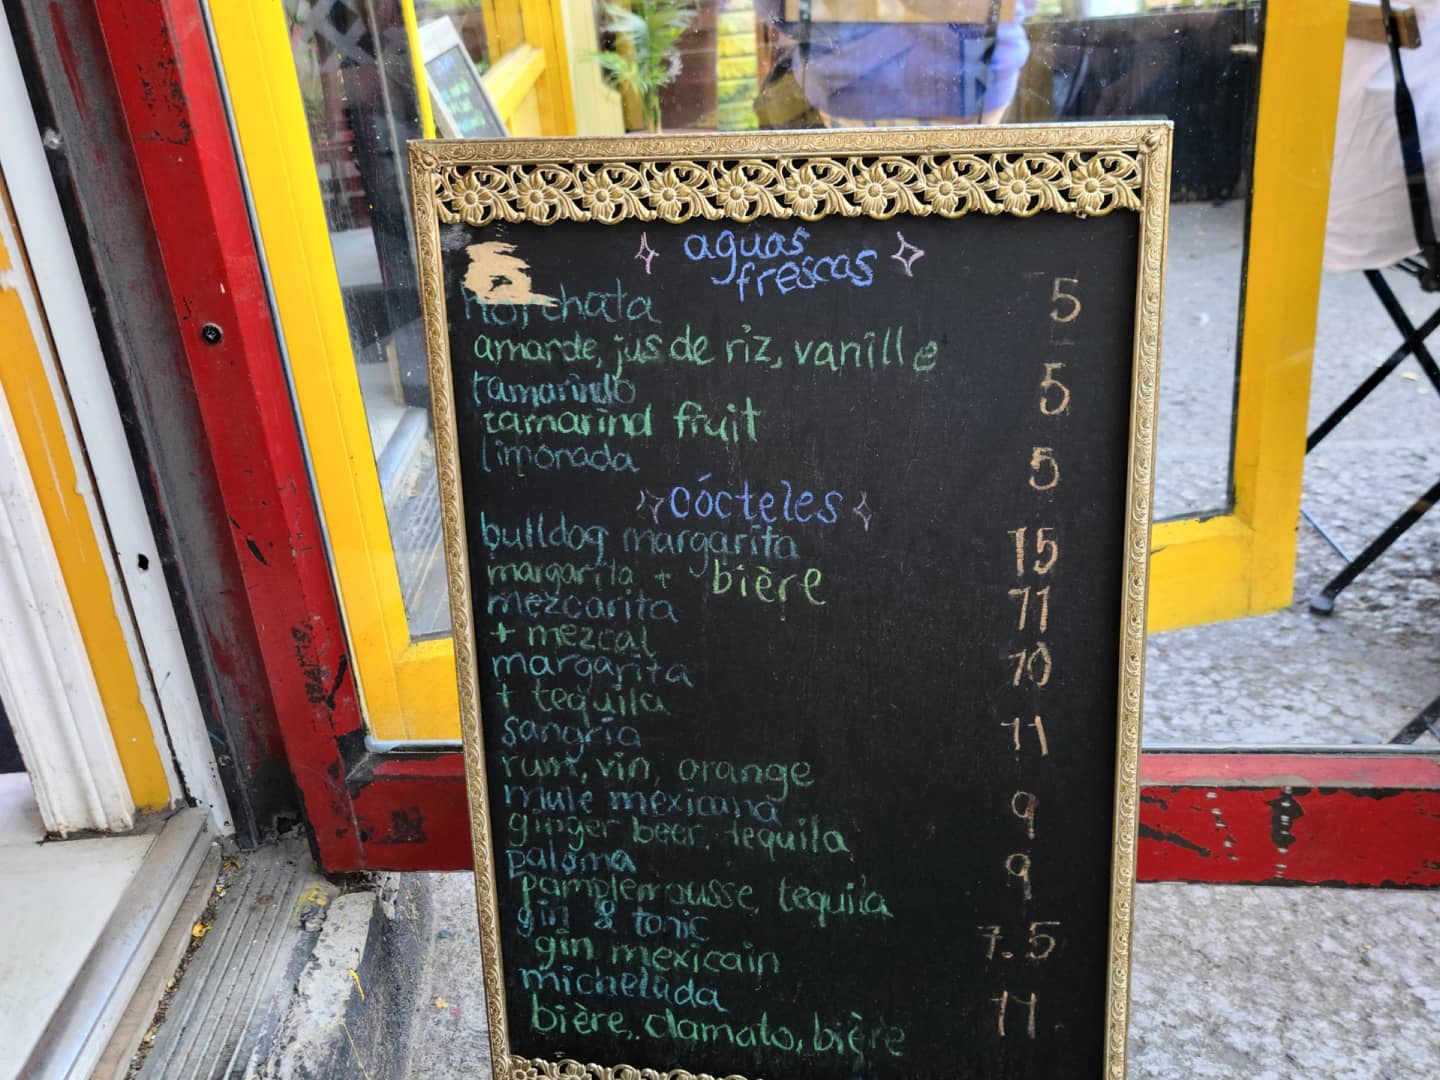 aguas
frescas
horchata 5
amande, jus de riz, vanille
tamarindo 5
tamarind fruit
limonada 5
cócteles
bulldog margarita 15
margarita + bière
mezcarita 11
+ mezcal
margarita 10
+ tequila
sangría 11
rum, vin, orange
mule mexicana 9
ginger beer, tequila
paloma 9
pamplemousse, tequila
gin & tonic 7.5
gin mexicain
michelada 11
bière, clamato, bière